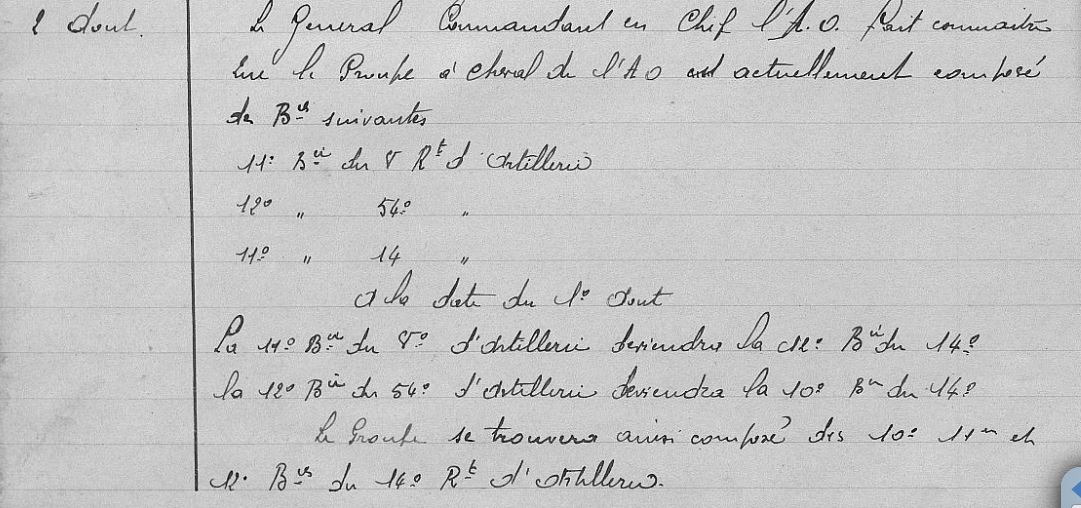 2 Aout. Le General Commandant en Chef l'A.O. fait connaitre
que le Groupe à cheval de l'AO est actuellement composé
des Bies suivantes
11e Bie du 8 Rt d'Artillerie
12e " 54e "
11e " 14 "
A la date du 1e Aout
La 11e Bie du 8e d'Artillerie deviendra la 12e Bie du 14e
la 12e Bie du 54e d'Artillerie deviendra la 10e Bie du 14e
Le Groupe se trouvera ainsi composé des 10e 11e et
12e Bies du 14e Rt d'Artillerie.